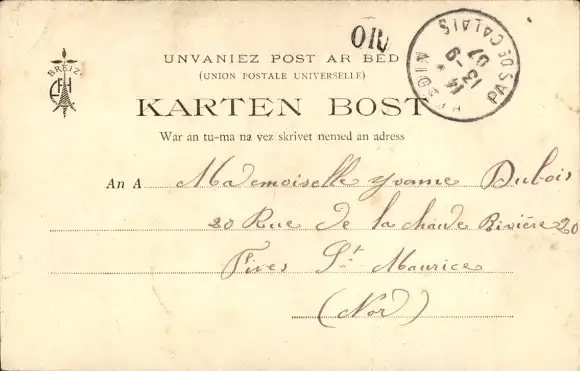 OR
UNVANIEZ POST AR BED
(UNION POSTALE UNIVERSELLE)
BREIZ
KARTEN BOST
War an tu-ma na vez skrivet nemed an adress
PAS DE CALAIS
14 *
13 - 9
07
An A Mademoiselle Yvonne Dubois
20 Rue de la chaude Rivière 20
Fives St Maurice
(Nord)